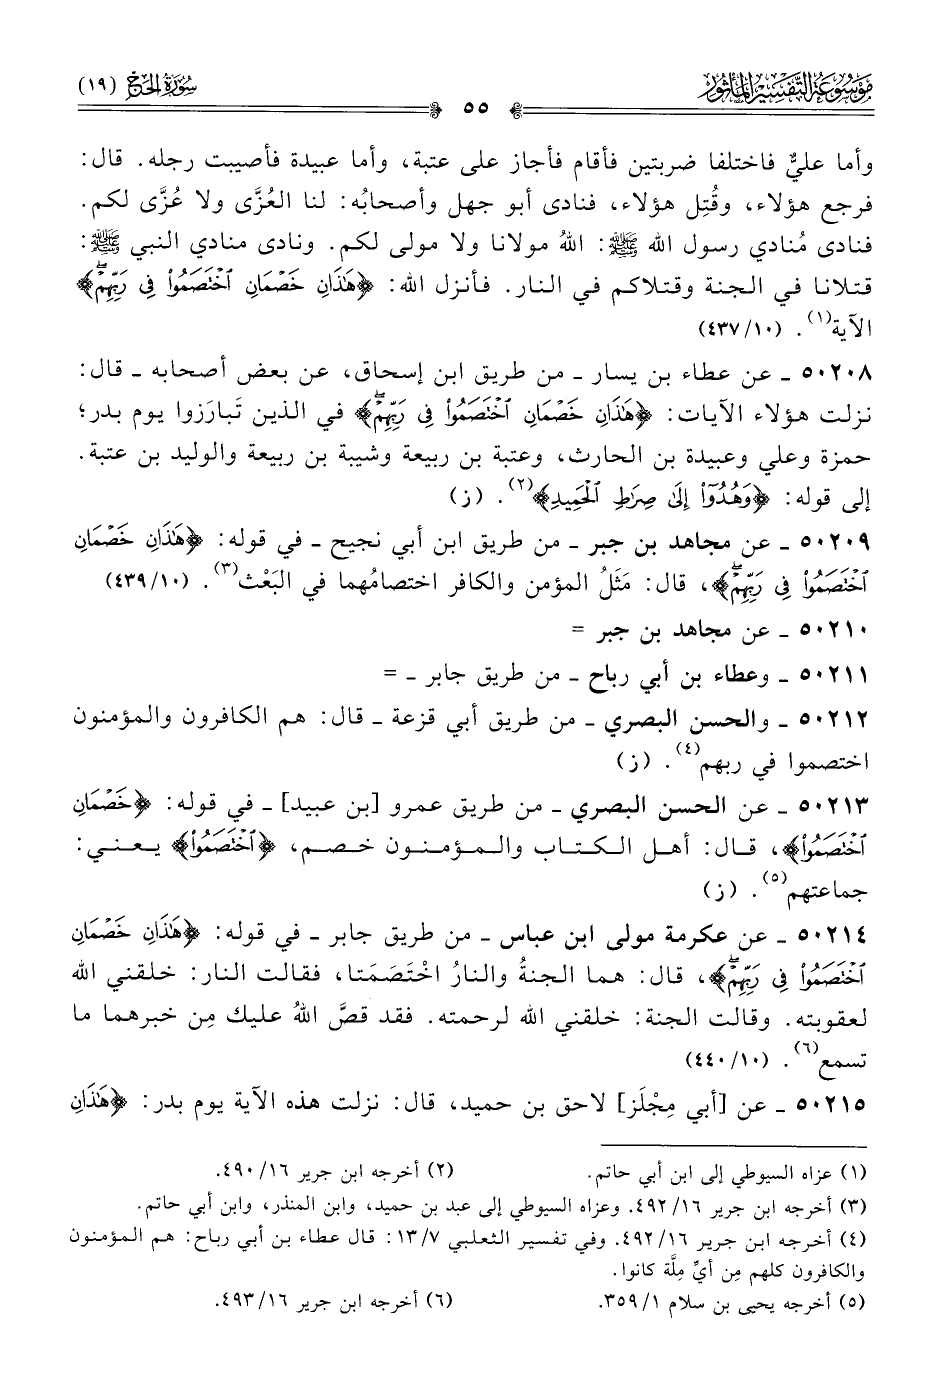 مَوْسُوعَة التَّفْسِير المَأْثُور
٥٥
سُورَةُ الحَجّ (١٩)
وأما عليٌّ فاختلفا ضربتين فأقام فأجاز على عتبة، وأما عبيدة فأصيبت رجله. قال:
فرجع هؤلاء، وقُتِل هؤلاء، فنادى أبو جهل وأصحابُه: لنا العُزَّى ولا عُزَّى لكم.
فنادى مُنادي رسول الله ﷺ: اللهُ مولانا ولا مولى لكم. ونادى منادي النبي ﷺ:
قتلانا في الجنة وقتلاكم في النار. فأنزل الله: ﴿هَٰذَانِ خَصْمَانِ ٱخْتَصَمُوا۟ فِى رَبِّهِمْۖ﴾
الآية(١). (١٠/٤٣٧)
٥٠٢٠٨ ـ عن عطاء بن يسار ـ من طريق ابن إسحاق، عن بعض أصحابه ـ قال:
نزلت هؤلاء الآيات: ﴿هَٰذَانِ خَصْمَانِ ٱخْتَصَمُوا۟ فِى رَبِّهِمْۖ﴾ في الذين تَبارَزوا يوم بدر؛
حمزة وعلي وعبيدة بن الحارث، وعتبة بن ربيعة وشيبة بن ربيعة والوليد بن عتبة.
إلى قوله: ﴿وَهُدُوٓا۟ إِلَىٰ صِرَٰطِ ٱلْحَمِيدِ﴾(٢). (ز)
٥٠٢٠٩ ـ عن مجاهد بن جبر ـ من طريق ابن أبي نجيح ـ في قوله: ﴿هَٰذَانِ خَصْمَانِ
ٱخْتَصَمُوا۟ فِى رَبِّهِمْۖ﴾، قال: مَثَلُ المؤمن والكافر اختصامُهما في البَعْث(٣). (١٠/٤٣٩)
٥٠٢١٠ ـ عن مجاهد بن جبر =
٥٠٢١١ ـ وعطاء بن أبي رباح ـ من طريق جابر ـ =
٥٠٢١٢ ـ والحسن البصري ـ من طريق أبي قزعة ـ قال: هم الكافرون والمؤمنون
اختصموا في ربهم(٤). (ز)
٥٠٢١٣ ـ عن الحسن البصري ـ من طريق عمرو [بن عبيد] ـ في قوله: ﴿خَصْمَانِ
ٱخْتَصَمُوا۟﴾، قال: أهل الكتاب والمؤمنون خصم، ﴿ٱخْتَصَمُوا۟﴾ يعني:
جماعتهم(٥). (ز)
٥٠٢١٤ ـ عن عكرمة مولى ابن عباس ـ من طريق جابر ـ في قوله: ﴿هَٰذَانِ خَصْمَانِ
ٱخْتَصَمُوا۟ فِى رَبِّهِمْۖ﴾، قال: هما الجنةُ والنارُ اخْتَصَمَتا، فقالت النار: خلقني الله
لعقوبته. وقالت الجنة: خلقني الله لرحمته. فقد قصَّ اللهُ عليك مِن خبرهما ما
تسمع(٦). (١٠/٤٤٠)
٥٠٢١٥ ـ عن [أبي مِجْلَز] لاحق بن حميد، قال: نزلت هذه الآية يوم بدر: ﴿هَٰذَانِ
(١) عزاه السيوطي إلى ابن أبي حاتم. (٢) أخرجه ابن جرير ١٦/٤٩٠.
(٣) أخرجه ابن جرير ١٦/٤٩٢. وعزاه السيوطي إلى عبد بن حميد، وابن المنذر، وابن أبي حاتم.
(٤) أخرجه ابن جرير ١٦/٤٩٢. وفي تفسير الثعلبي ٧/١٣: قال عطاء بن أبي رباح: هم المؤمنون
والكافرون كلهم مِن أيِّ مِلَّة كانوا.
(٥) أخرجه يحيى بن سلام ١/٣٥٩. (٦) أخرجه ابن جرير ١٦/٤٩٣.